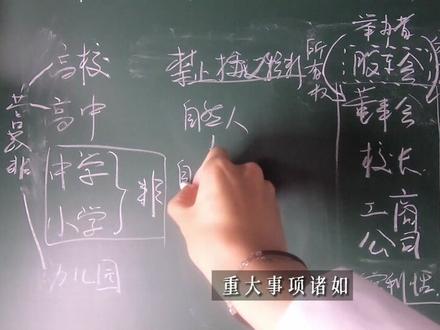 高校
高中
中学
小学
幼儿园
营
非
非
禁止
自然人
自
所有权
举办者
股东会
董事会
校长
工商
公司
营利性
重大事项诸如